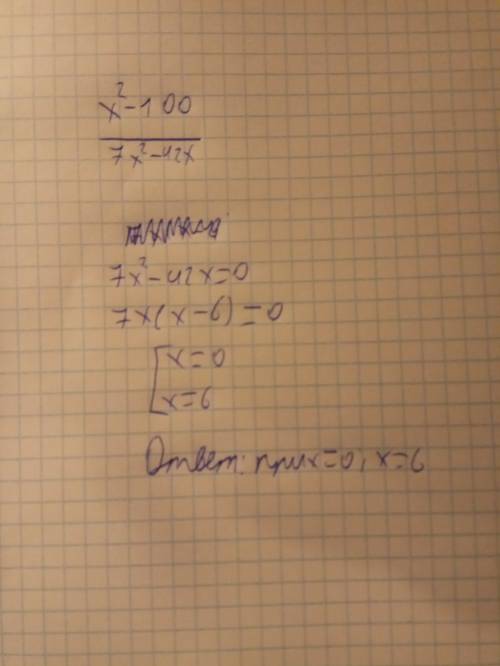 x²-100
7x²-42x
7x²-42x=0
7x(x-6)=0
x=0
x=6
Ответ: при x=0, x=6